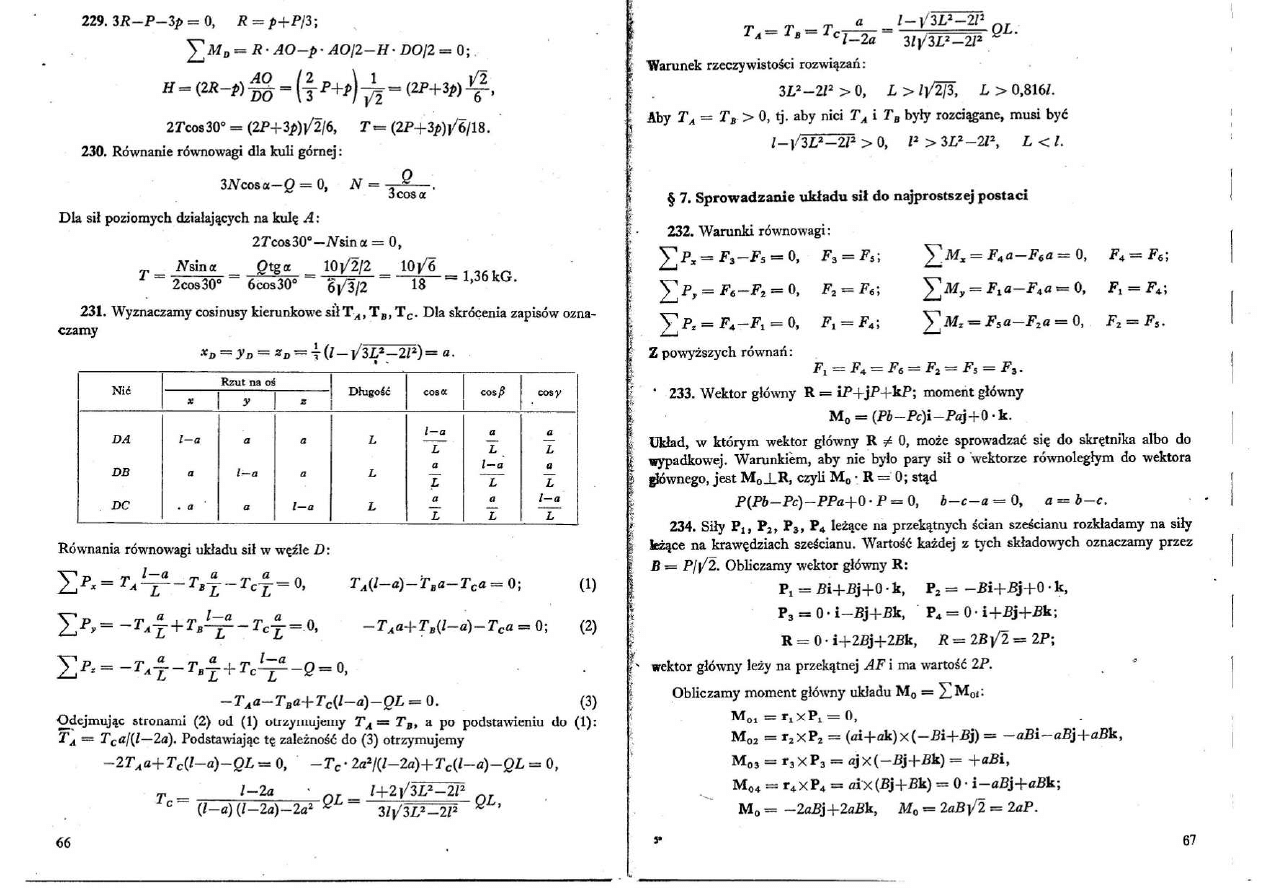 229. 3R—P—3p = 0, R = p+P/3;
∑M_D = R· AO—p· AO/2—H· DO/2 = 0;
H = (2R-p) AO/DO = (2/3 P+p) 1/√2 = (2P+3p) √2/6,
2Tcos30° = (2P+3p)√2/6, T = (2P+3p)√6/18.
230. Równanie równowagi dla kuli górnej:
3Ncosα—Q = 0, N = Q/(3cosα).
Dla sił poziomych działających na kulę A:
2Tcos30°—Nsinα = 0,
T = Nsinα/(2cos30°) = Qtgα/(6cos30°) = (10√2/2)/(6√3/2) = 10√6/18 = 1,36 kG.
231. Wyznaczamy cosinusy kierunkowe sił T_A, T_B, T_C. Dla skrócenia zapisów ozna-
czamy
x_D = y_D = z_D = 1/3 (l—√(3L²—2l²)) = a.
Nić Rzut na oś Długość cosα cosβ cosγ
x y z
DA l—a a a L (l—a)/L a/L a/L
DB a l—a a L a/L (l—a)/L a/L
DC a a l—a L a/L a/L (l—a)/L
Równania równowagi układu sił w węźle D:
∑P_x = T_A (l—a)/L — T_B a/L — T_C a/L = 0, T_A(l—a)—T_B a—T_C a = 0; (1)
∑P_y = —T_A a/L + T_B (l—a)/L — T_C a/L = 0, —T_A a+T_B(l—a)—T_C a = 0; (2)
∑P_z = —T_A a/L — T_B a/L + T_C (l—a)/L —Q = 0,
—T_A a—T_B a+T_C(l—a)—QL = 0. (3)
Odejmując stronami (2) od (1) otrzymujemy T_A = T_B, a po podstawieniu do (1):
T_A = T_C a/(l—2a). Podstawiając tę zależność do (3) otrzymujemy
—2T_A a+T_C(l—a)—QL = 0, —T_C· 2a²/(l—2a)+T_C(l—a)—QL = 0,
T_C = (l—2a)/((l—a)(l—2a)—2a²) QL = (l+2√(3L²—2l²))/(3l√(3L²—2l²)) QL,
66
T_A = T_B = T_C a/(l—2a) = (l—√(3L²—2l²))/(3l√(3L²—2l²)) QL.
Warunek rzeczywistości rozwiązań:
3L²—2l² > 0, L > l√2/3, L > 0,816l.
Aby T_A = T_B > 0, tj. aby nici T_A i T_B były rozciągane, musi być
l—√(3L²—2l²) > 0, l² > 3L²—2l², L < l.
§ 7. Sprowadzanie układu sił do najprostszej postaci
232. Warunki równowagi:
∑P_x = F₃—F₅ = 0, F₃ = F₅; ∑M_x = F₄a—F₆a = 0, F₄ = F₆;
∑P_y = F₆—F₂ = 0, F₂ = F₆; ∑M_y = F₁a—F₄a = 0, F₁ = F₄;
∑P_z = F₄—F₁ = 0, F₁ = F₄; ∑M_z = F₅a—F₂a = 0, F₂ = F₅.
Z powyższych równań:
F₁ = F₄ = F₆ = F₂ = F₅ = F₃.
233. Wektor główny R = iP+jP+kP; moment główny
M₀ = (Pb—Pc)i—Paj+0·k.
Układ, w którym wektor główny R ≠ 0, może sprowadzać się do skrętnika albo do
wypadkowej. Warunkiem, aby nie było pary sił o wektorze równoległym do wektora
głównego, jest M₀⊥R, czyli M₀· R = 0; stąd
P(Pb—Pc)—PPa+0·P = 0, b—c—a = 0, a = b—c.
234. Siły P₁, P₂, P₃, P₄ leżące na przekątnych ścian sześcianu rozkładamy na siły
leżące na krawędziach sześcianu. Wartość każdej z tych składowych oznaczamy przez
B = P/√2. Obliczamy wektor główny R:
P₁ = Bi+Bj+0·k, P₂ = —Bi+Bj+0·k,
P₃ = 0·i—Bj+Bk, P₄ = 0·i+Bj+Bk;
R = 0·i+2Bj+2Bk, R = 2B√2 = 2P;
wektor główny leży na przekątnej AF i ma wartość 2P.
Obliczamy moment główny układu M₀ = ∑M₀ᵢ:
M₀₁ = r₁×P₁ = 0,
M₀₂ = r₂×P₂ = (ai+ak)×(—Bi+Bj) = —aBi—aBj+aBk,
M₀₃ = r₃×P₃ = aj×(—Bj+Bk) = +aBi,
M₀₄ = r₄×P₄ = ai×(Bj+Bk) = 0·i—aBj+aBk;
M₀ = —2aBj+2aBk, M₀ = 2aB√2 = 2aP.
5* 67